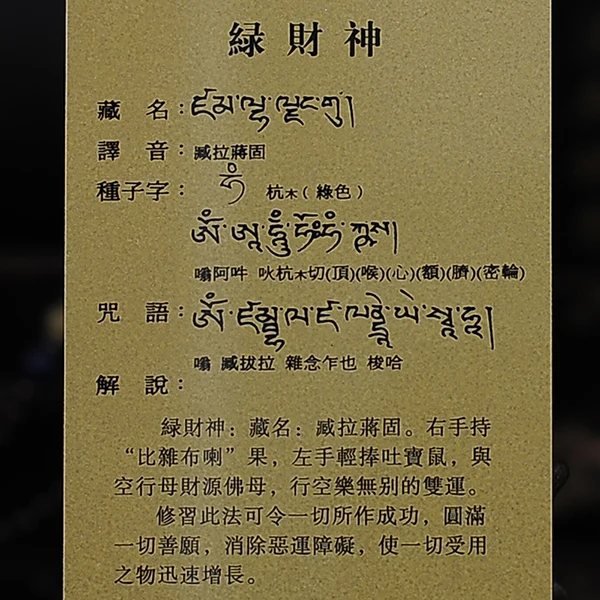 綠財神
藏 名：ཛམ་ལྷ་ལྗང་གུ།
譯 音：臧拉蔣固
種子字： 杭木（綠色）
嗡阿吽 吙杭木切(頂)(喉)(心)(額)(臍)(密輪)
咒 語：
嗡 臧拔拉 雜念乍也 梭哈
解 說：
綠財神：藏名：臧拉蔣固。右手持
“比雜布喇”果，左手輕捧吐寶鼠，與
空行母財源佛母，行空樂無別的雙運。
修習此法可令一切所作成功，圓滿
一切善願，消除惡運障礙，使一切受用
之物迅速增長。